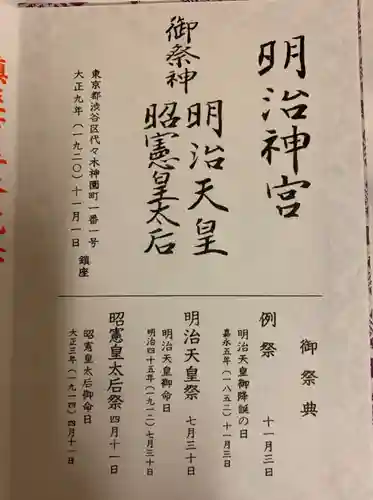 明治神宮
御祭神
明治天皇
昭憲皇太后
東京都渋谷区代々木神園町一番一号
大正九年（一九二〇）十一月一日 鎮座
御祭典
例祭 十一月三日
明治天皇御降誕の日
嘉永五年（一八五二）十一月三日
明治天皇祭 七月三十日
明治天皇御命日
明治四十五年（一九一二）七月三十日
昭憲皇太后祭 四月十一日
昭憲皇太后御命日
大正三年（一九一四）四月十一日